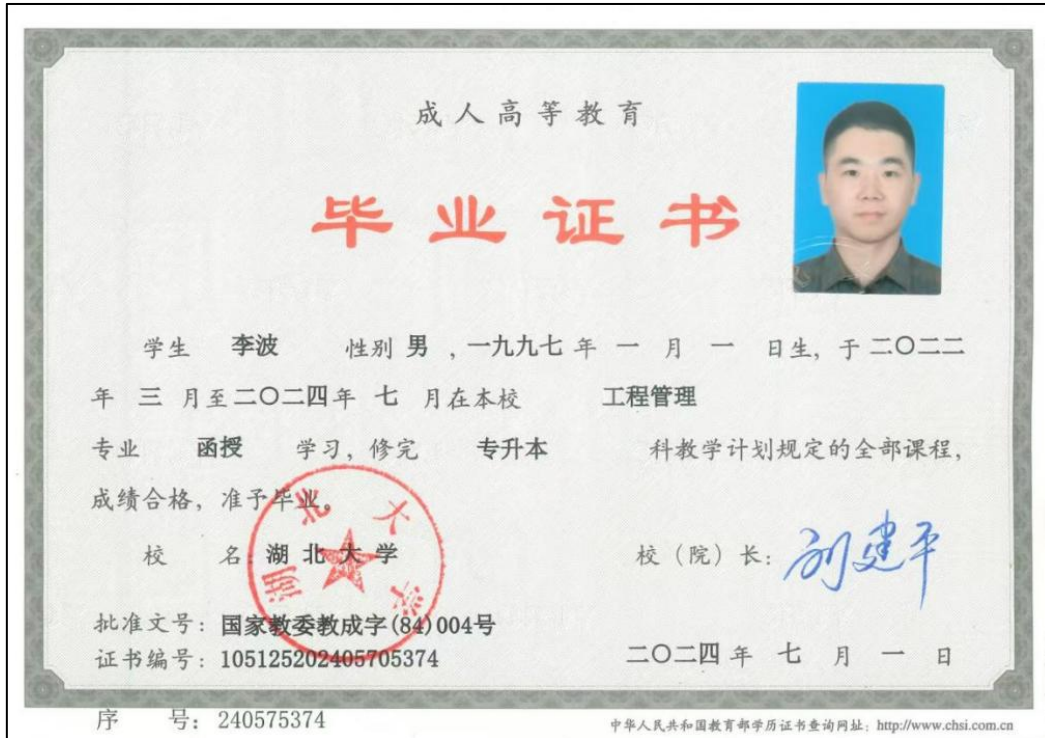 成人高等教育
毕业证书
学生 李波 性别 男 ,一九九七 年 一 月 一 日生, 于 二〇二二
年 三 月至 二〇二四 年 七 月在本校 工程管理
专业 函授 学习, 修完 专升本 科教学计划规定的全部课程,
成绩合格, 准予毕业。
校 名: 湖北大学 校(院)长: 刘建平
湖北大学
批准文号: 国家教委教成字(84)004号
证书编号: 105125202405705374 二〇二四 年 七 月 一 日
序 号: 240575374 中华人民共和国教育部学历证书查询网址: http://www.chsi.com.cn